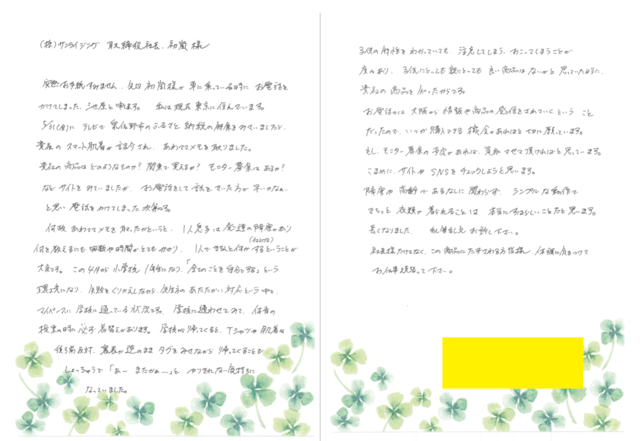 (株)サンライジング 取締役社長 初瀬様
突然お手紙すみません。先日初瀬様が車に乗っている時にお電話を
かけてしまった と申します。私は現在東京に住んでいます。
5/31(金)にテレビで泉佐野市のふるさと納税の報道をみていましたが、
貴社のスマート肌着が紹介され、あわててメモを取りました。
貴社の商品はどのようなものか？関東で買えるか？モニター募集はあるか？
などサイトをみていましたが、お電話をして話をきいた方が早いかなぁ…
と思い電話をかけてしまった次第です。
何故あわててメモを取ったかというと、1人息子は発達の障害があり
何を教えるにも回数や時間がとてもかかり、1人できちんと何かするということが
大変です。この4月から小学校1年生になり、「全てのことを自分でする」という
環境になり、失敗をくり返しながら、先生方のあたたかい対応という中で、
マイペースに学校に通っている状況です。学校に通わせてみて、体育の
授業の時に必ず着替えがあります。学校から帰ってくると、Tシャツや肌着は
後ろ前反対、裏表が逆のままタグをみせながら帰ってくることも
しょっちゅうで「あー またかぁ…」と、やりきれない気持ちに
なっていました。
子供の特性をわかっていても、注意してしまう、おこってしまうことが
度々あり、子供にとっても親にとっても良い商品はないかと思っていた時に、
貴社の商品を知ったからです。
お電話口には大阪から情報や商品の発信をされていくということ
だったので、いつか購入できる機会があればと切に願っています。
もし、モニター募集の予定があれば、参加させて頂ければと思っています。
こまめにサイトやSNSをチェックしようと思います。
障害や高齢があるなしに関わらず、シンプルな動作で
きちっと衣類が着られることは本当にすばらしいことだと思います。
長くなりました。乱筆乱文お許し下さい。
社長様だけでなく、この商品にたずさわる方皆様 体調に気をつけて
お仕事頑張って下さい。